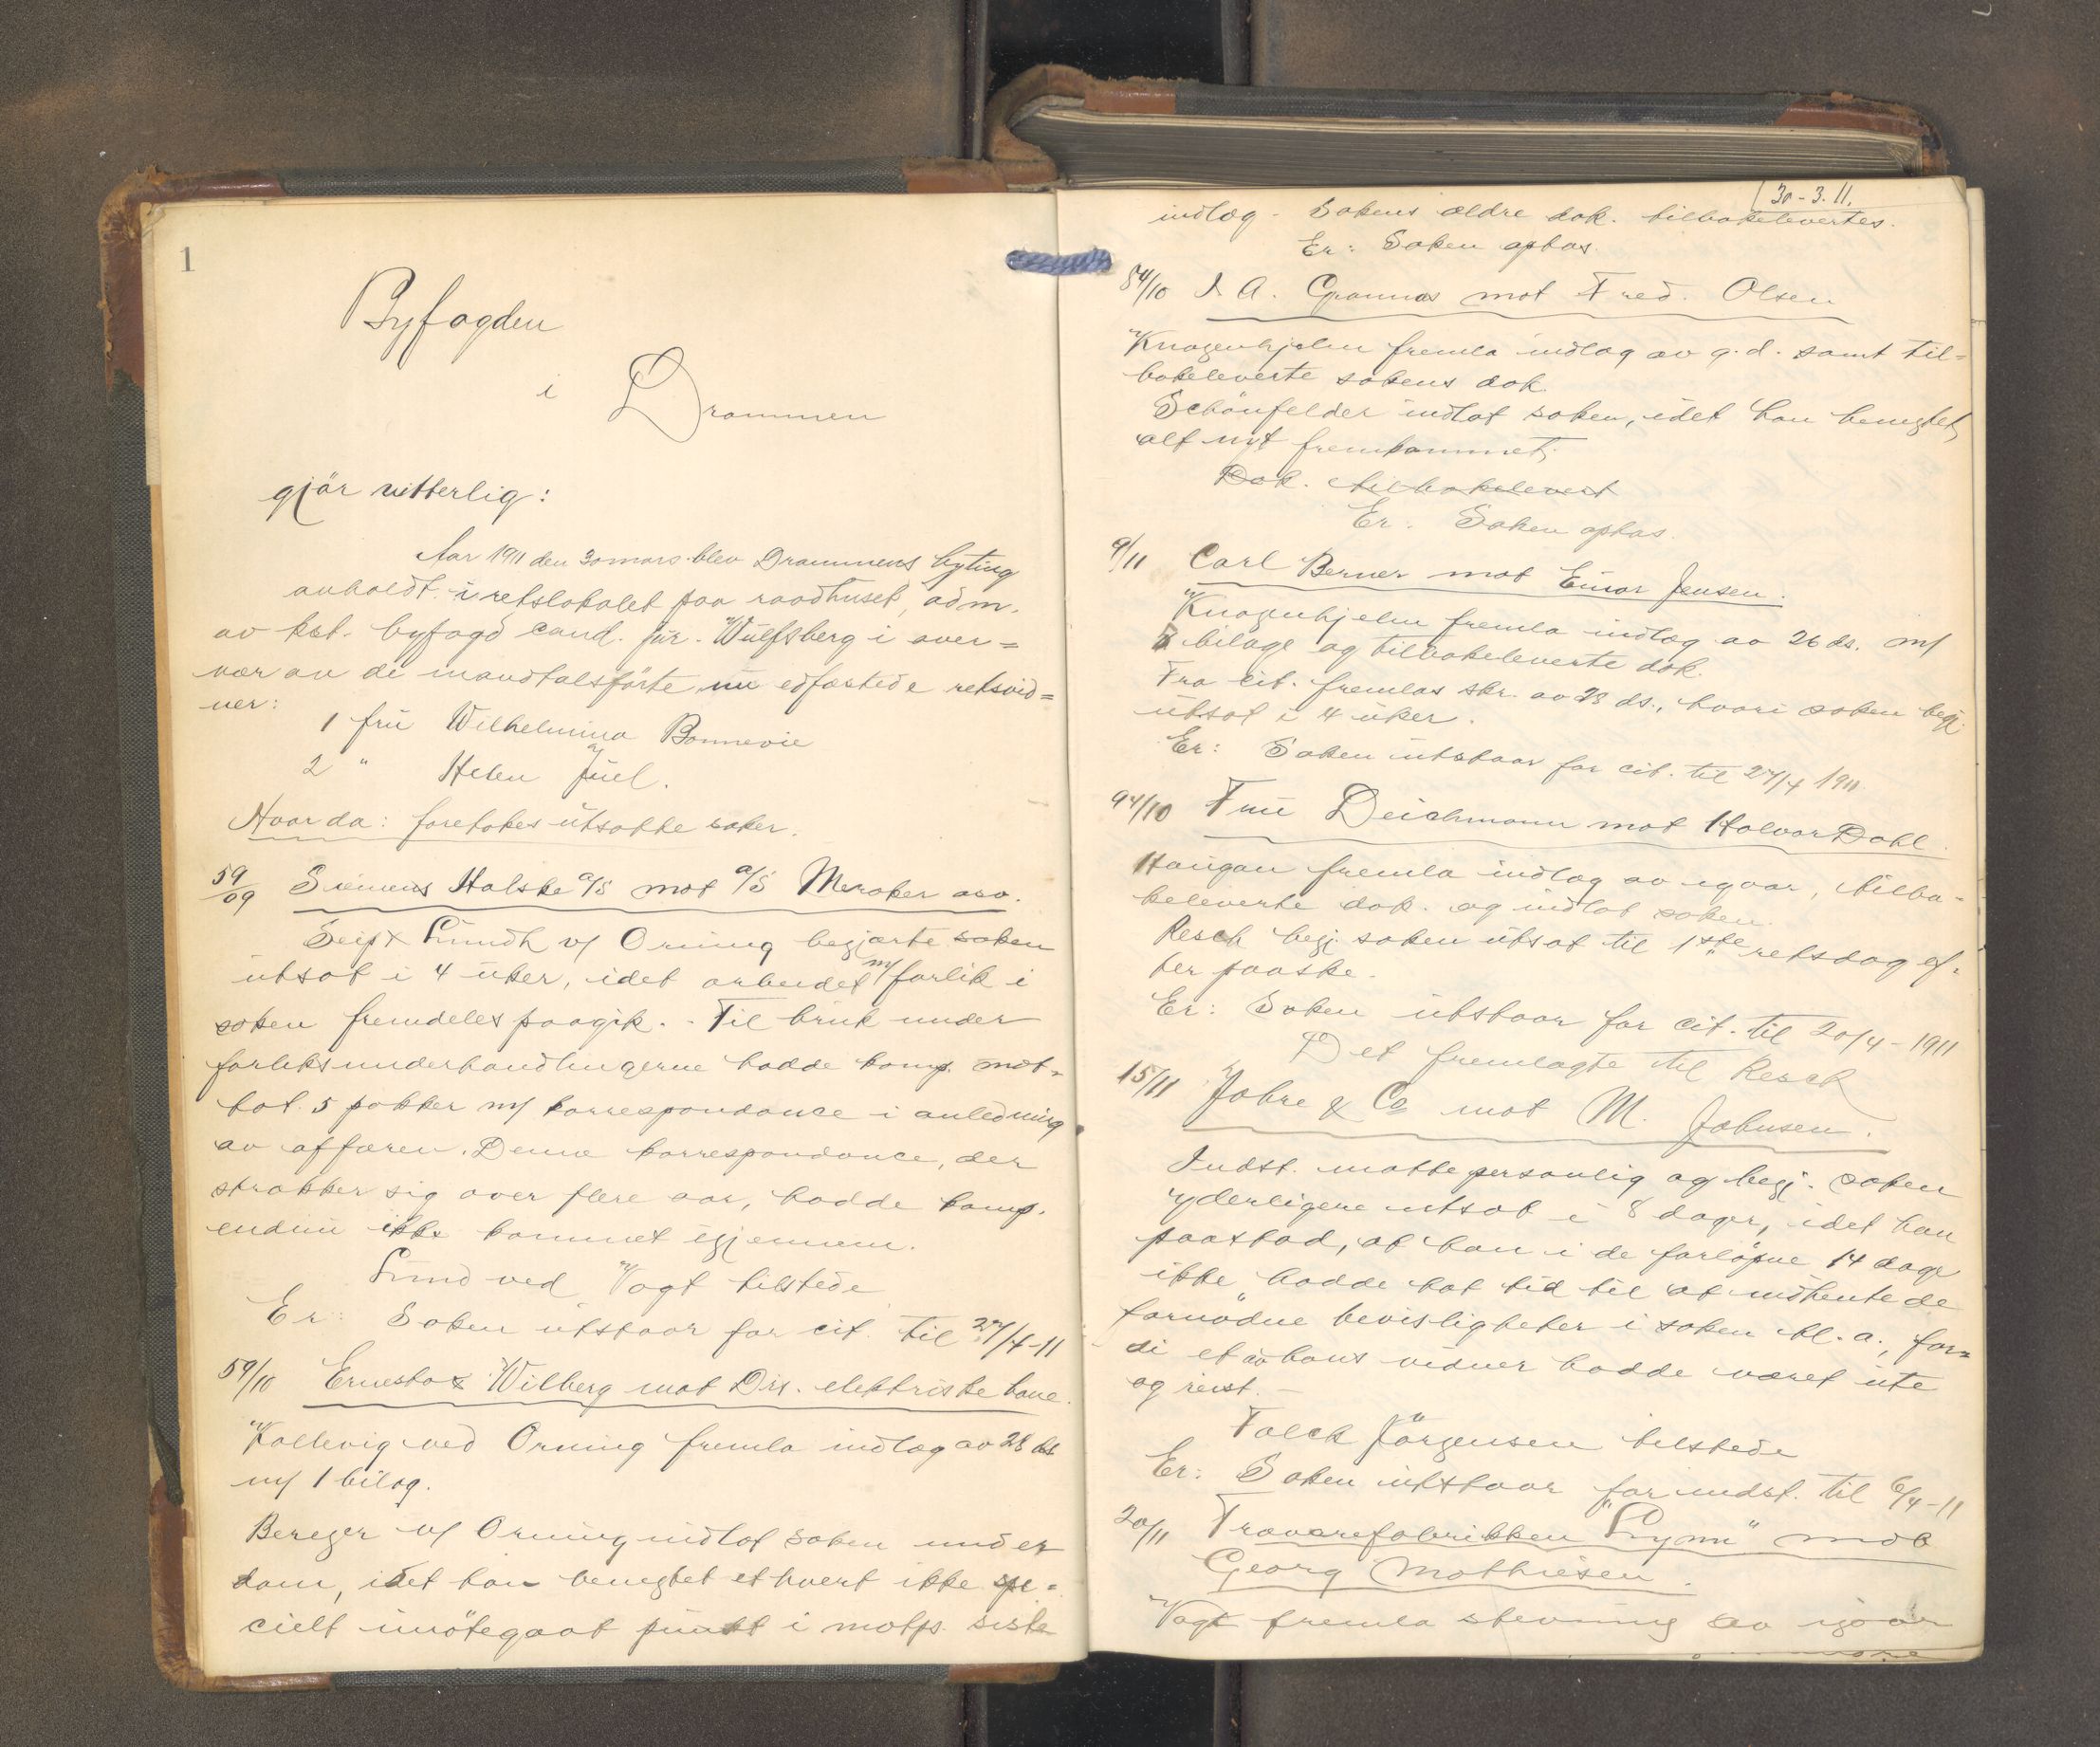 1
Byfogden
i Drammen
gjör vitterlig:
Aar 1911 den 30 mars blev Drammens byting
avholdt i retslokalet paa raadhuset, adm.
av kst. byfogd cand. jur. Wulfsberg i over=
vær av de mandtalsførte edfæstede retsvid=
ner:
1 fru Wilhelmina Bonnevie
2 " Helen Juel.
Hvorda: foretokes utsatte saker.
59/09 Siemens Halske a/s mot a/s Meraker
Seip & Lundh v/ Orning begjærte saken
utsat i 4 uker, idet arbeidet m/ forlik i
saken fremdeles paagik. - Til bruk under
forliksunderhandlingerne hadde komp. mot-
tat 5 pakker m/ korrespondance i anledning
av affæren. Denne korrespondance, der
strækker sig over flere aar, hadde komp.
endnu ikke kommet igjennem.
Lund ved Vogt tilstede
Er: Saken utstaar for cit. til 27/4-11
59/10 Ernesto & Wilberg mot Drs. elektriske bane.
Kallevig ved Orning fremla indlæg av 28 ds
m/ 1 bilag.
Bereger v/ Orning indlot saken under
dom, idet han benegtet ethvert ikke spe=
cielt imötegaat punkt i motp. siste
30-3.11.
indlæg - Sakens ældre dok. tilbakelevertes.
Er: Saken optas.
54/10 I. A. Grannas mot Fred. Olsen
Knagenhjelm fremla indlæg av g.d. samt til=
bakeleverte sakens dok
Schönfelder indlot saken, idet han benegtet
alt nyt fremkommet.
Dok. tilbakelevert
Er: Saken optas.
9/11 Carl Berner mot Einar Jensen.
Knagenhjelm fremla indlæg av 26 ds. m/
bilage og tilbakeleverte dok.
Fra cit. fremlas skr. av 28 ds., hvori saken begj.
utsat i 4 uker.
Er: Saken utstaar for cit. til 27/4 1911.
94/10 Fru Deichmann mot Halvor Dahl
Haugan fremla indlæg av igaar, tilba-
keleverte dok. og indlot saken.
Resch begj. saken utsat til 1ste retsdag ef-
ter paaske.
Er: Saken utstaar for cit. til 20/4-1911
Det fremlagte til Resch
15/11 Jahre & Co mot M. Johnsen.
Indst. møtte personlig og begj. saken
yderligere utsat i 8 dager, idet han
paastod, at han i de forløpne 14 dage
ikke hadde hat tid til at indhente de
fornödne bevisligheter i saken bl. a., for=
di et av hans vidner hadde været ute
og reist. -
Falck Jörgensen tilstede
Er: Saken utstaar for indst. til 6/4-11
20/11 Travarefabrikken "Lynn" mot
Georg Mathiesen.
Vogt fremla stevning av igaar